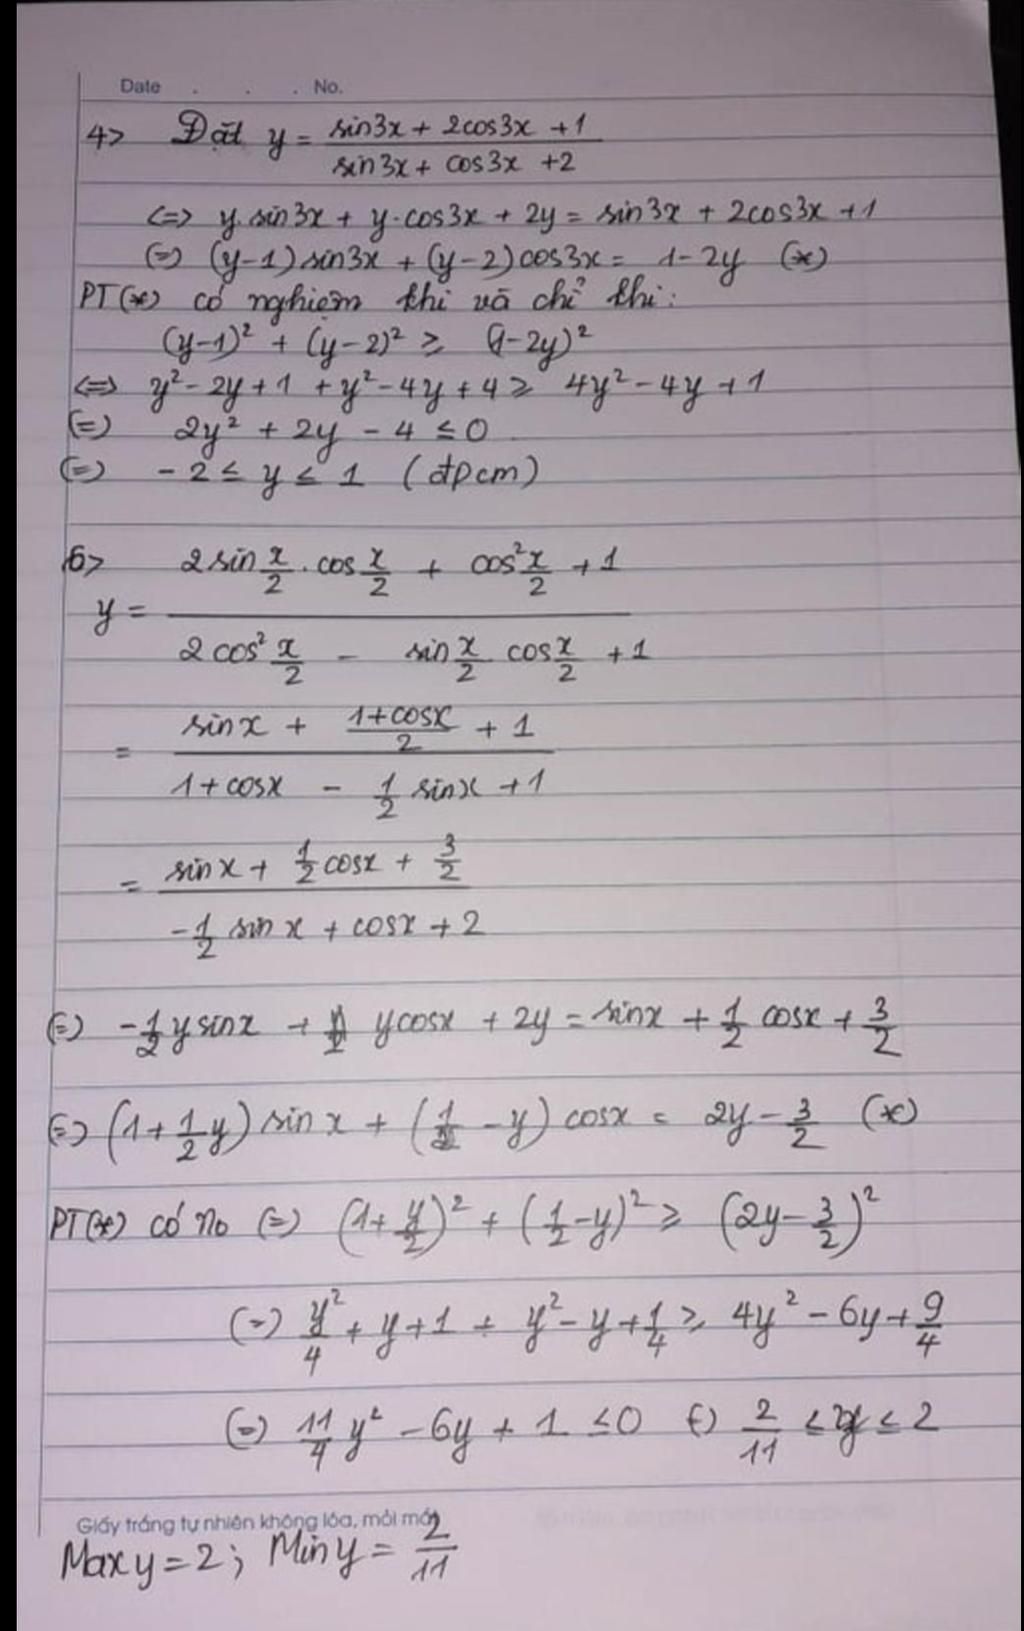 Date . . . No.
4> Đặt y = (sin3x + 2cos3x + 1)/(sin3x + cos3x + 2)
<=> y.sin3x + y.cos3x + 2y = sin3x + 2cos3x + 1
(=) (y-1)sin3x + (y-2)cos3x = 1-2y (*)
PT(*) có nghiệm khi và chỉ khi:
(y-1)² + (y-2)² ≥ (1-2y)²
<=> y² - 2y + 1 + y² - 4y + 4 ≥ 4y² - 4y + 1
(=) 2y² + 2y - 4 ≤ 0
(=) -2 ≤ y ≤ 1 (đpcm)
6> y = (2sin x/2 . cos x/2 + cos² x/2 + 1)/(2cos² x/2 - sin x/2 cos x/2 + 1)
= (sinx + (1+cosx)/2 + 1)/(1+cosx - 1/2 sinx + 1)
= (sinx + 1/2 cosx + 3/2)/(-1/2 sinx + cosx + 2)
(=) -1/2 y sinx + ycosx + 2y = sinx + 1/2 cosx + 3/2
(=) (1 + 1/2 y) sinx + (1/2 - y) cosx = 2y - 3/2 (*)
PT(*) có no (=) (1 + y/2)² + (1/2 - y)² ≥ (2y - 3/2)²
(=) y²/4 + y + 1 + y² - y + 1/4 ≥ 4y² - 6y + 9/4
(=) 11/4 y² - 6y + 1 ≤ 0 (=) 2/11 ≤ y ≤ 2
Giấy trắng tự nhiên không lóa, mỏi mắt
Max y = 2; Min y = 2/11